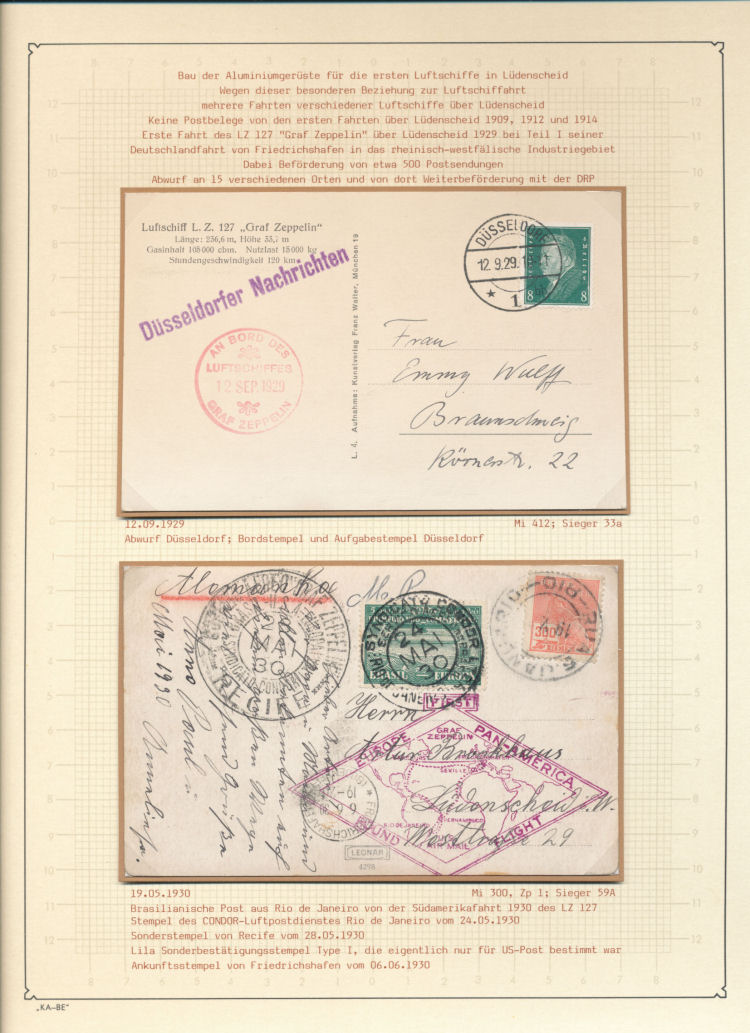 Bau der Aluminiumgerüste für die ersten Luftschiffe in Lüdenscheid
Wegen dieser besonderen Beziehung zur Luftschiffahrt
mehrere Fahrten verschiedener Luftschiffe über Lüdenscheid
Keine Postbelege von den ersten Fahrten über Lüdenscheid 1909, 1912 und 1914
Erste Fahrt des LZ 127 "Graf Zeppelin" über Lüdenscheid 1929 bei Teil I seiner
Deutschlandfahrt von Friedrichshafen in das rheinisch-westfälische Industriegebiet
Dabei Beförderung von etwa 500 Postsendungen
Abwurf an 15 verschiedenen Orten und von dort Weiterbeförderung mit der DRP
Luftschiff L. Z. 127 „Graf Zeppelin"
Länge: 236,6 m, Höhe 33,7 m
Gasinhalt 105 000 cbm. Nutzlast 15 000 kg
Stundengeschwindigkeit 120 km.
Düsseldorfer Nachrichten
AN BORD DES
LUFTSCHIFFES
12 SEP. 1929
GRAF ZEPPELIN
L. 4. Aufnahme: Kunstverlag Franz Walter, München 19
DÜSSELDORF
12.9.29.
* 1
8 8
Frau
Emmy Wulff
Braunschweig
Körnerstr. 22
12.09.1929
Mi 412; Sieger 33a
Abwurf Düsseldorf; Bordstempel und Aufgabestempel Düsseldorf
Alemanha
RECIFE
SYNDICATO CONDOR
24
MAI
30
RIO DE JANEIRO
BRASIL EUROPA
300
Mai 1930
Herrn
Artur Brockhaus
Lüdenscheid i. W.
29
FIRST
EUROPE
PAN-AMERICA
ROUND FLIGHT
GRAF
ZEPPELIN
SEVILLE
PERNAMBUCO
RIO DE JANEIRO
AIR MAIL
FRIEDRICHSHAFEN
LEONAR
4298
19.05.1930
Mi 300, Zp 1; Sieger 59A
Brasilianische Post aus Rio de Janeiro von der Südamerikafahrt 1930 des LZ 127
Stempel des CONDOR-Luftpostdienstes Rio de Janeiro vom 24.05.1930
Sonderstempel von Recife vom 28.05.1930
Lila Sonderbestätigungsstempel Type I, die eigentlich nur für US-Post bestimmt war
Ankunftsstempel von Friedrichshafen vom 06.06.1930
„KA-BE"